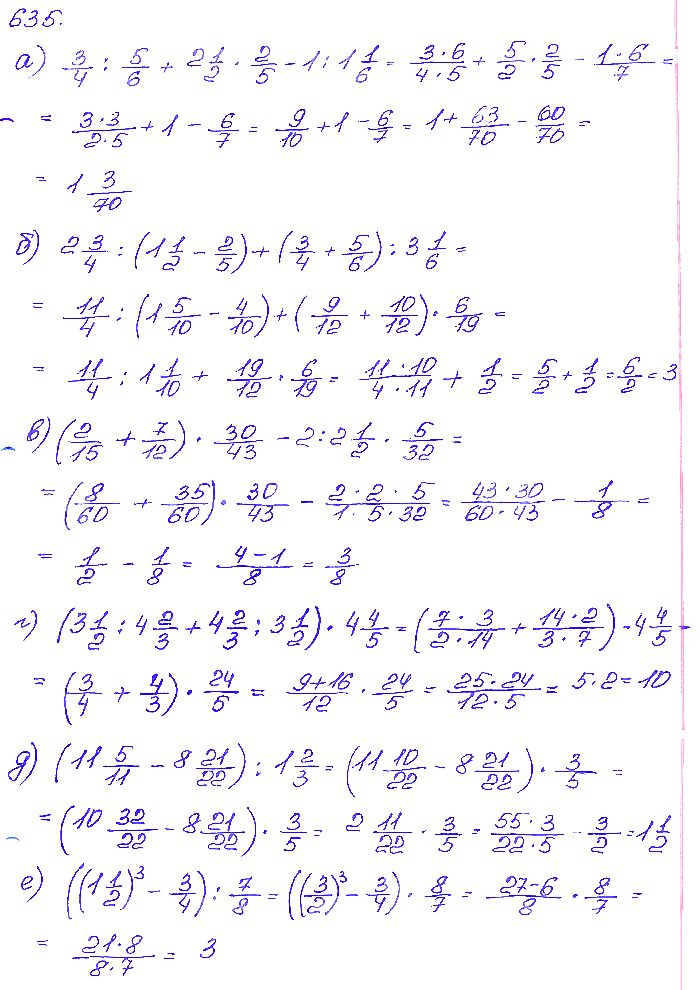 635.
а) 3/4 : 5/6 + 2 1/2 · 2/5 - 1 : 1 1/6 = 3·6/4·5 + 5/2 · 2/5 - 1·6/7 =
= 3·3/2·5 + 1 - 6/7 = 9/10 + 1 - 6/7 = 1 + 63/70 - 60/70 =
= 1 3/70
б) 2 3/4 : (1 1/2 - 2/5) + (3/4 + 5/6) : 3 1/6 =
= 11/4 : (1 5/10 - 4/10) + (9/12 + 10/12) · 6/19 =
= 11/4 : 1 1/10 + 19/12 · 6/19 = 11·10/4·11 + 1/2 = 5/2 + 1/2 = 6/2 = 3
в) (2/15 + 7/12) · 30/43 - 2 : 2 1/2 · 5/32 =
= (8/60 + 35/60) · 30/43 - 2·2·5/1·5·32 = 43·30/60·43 - 1/8 =
= 1/2 - 1/8 = 4-1/8 = 3/8
г) (3 1/2 : 4 2/3 + 4 2/3 : 3 1/2) · 4 4/5 = (7·3/2·14 + 14·2/3·7) · 4 4/5 -
= (3/4 + 4/3) · 24/5 = 9+16/12 · 24/5 = 25·24/12·5 = 5·2 = 10
д) (11 5/11 - 8 21/22) : 1 2/3 = (11 10/22 - 8 21/22) · 3/5 =
= (10 32/22 - 8 21/22) · 3/5 = 2 11/22 · 3/5 = 55·3/22·5 - 3/2 = 1 1/2
е) ((1 1/2)³ - 3/4) : 7/8 = ((3/2)³ - 3/4) · 8/7 = 27-6/8 · 8/7 =
= 21·8/8·7 = 3